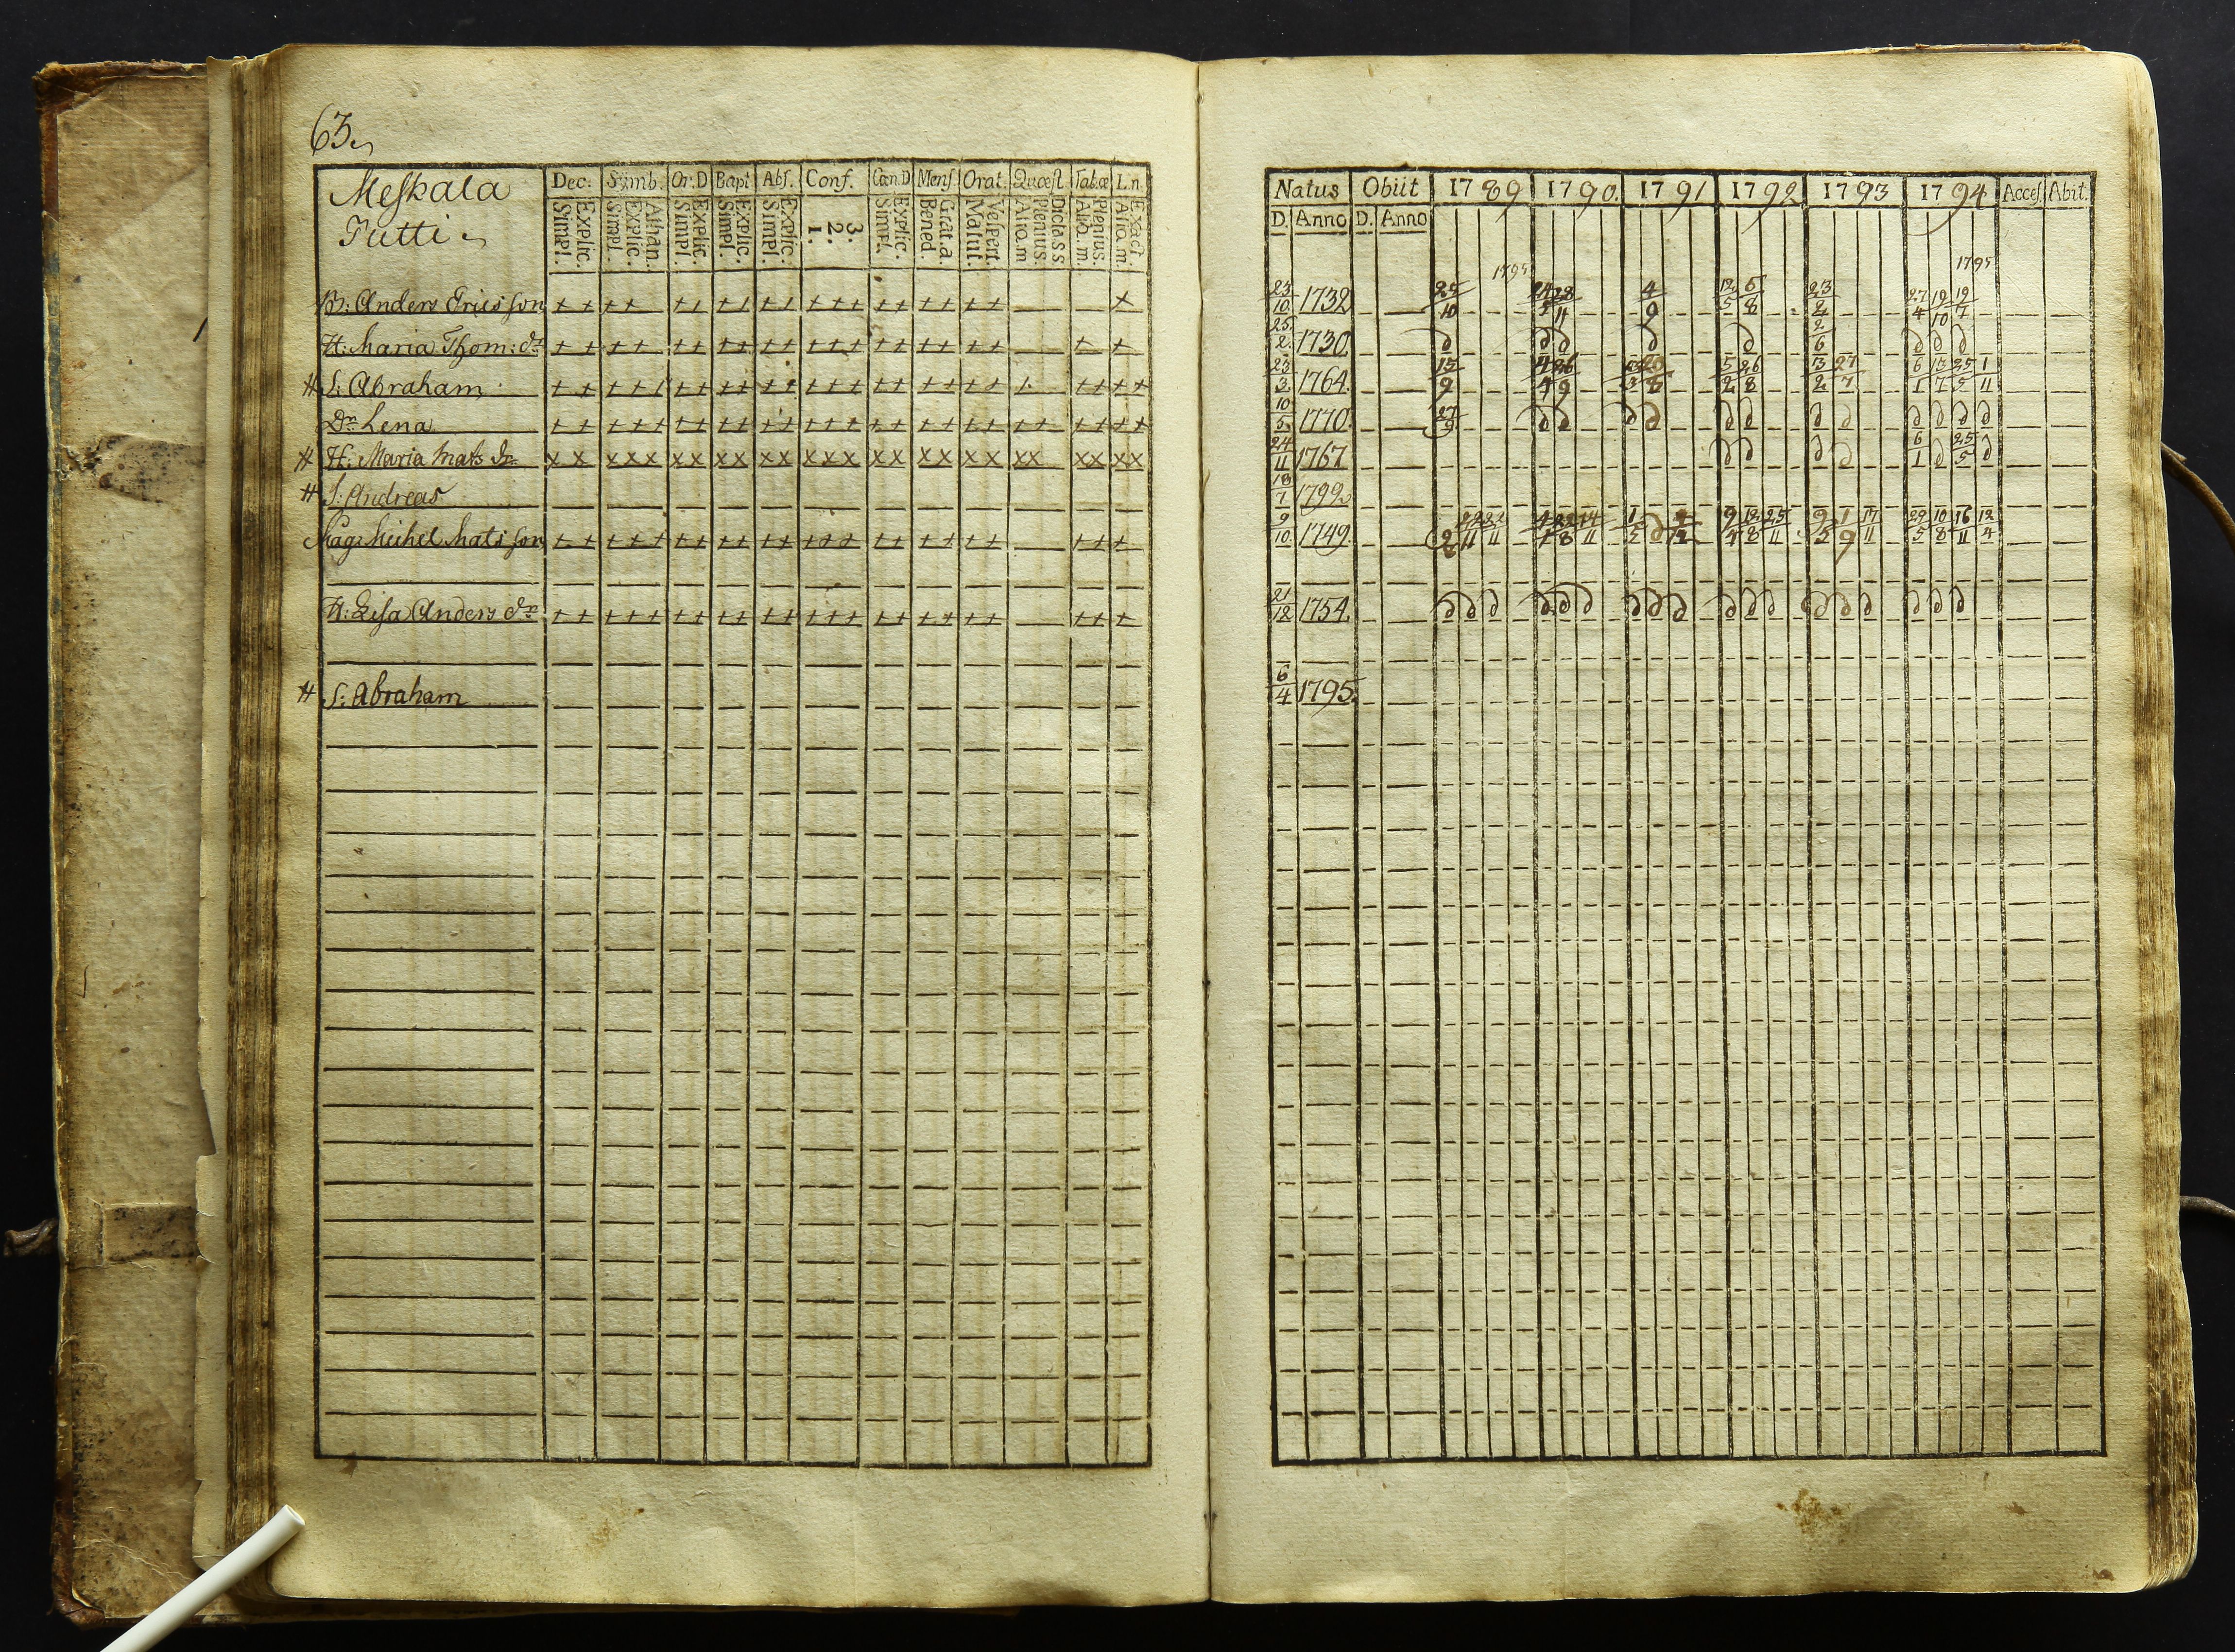 63.
Meskala
Tutti
Dec: Symb. Or: D Bapt Abs. Conf. Cœn. D Mens. Orat. Quæst. Tabæ L.n.
Simpl. Explic. Simpl. Explic. Athan. Simpl. Explic. Simpl. Explic. Simpl. Explic. 1. 2. 3. Simpl. Explic. Bened. Grat. a. Matut. Vespert. Aliq. m. Plenius. Dict. a s s. Aliq. m. Plenius. Aliq. m. Exact.
B: Anders Ericsson
H: Maria Thom: dr
# S: Abraham
Dr Lena
# H: Maria Mats dr
# S: Andreas
Meihel Matsson
H: Lisa Anders dr
# S: Abraham
Natus Obiit 1789 1790. 1791 1792 1793 1794 Acces. Abit.
D. Anno D. Anno
1795 1795
23/10 1732 25/10 24/3 28/11 4/9 12/5 6/8 23/2 27/4 19/10 19/7
25/2 1730 d d d d d 2/6 d d d
23/3 1764. 13/9 4/4 26/9 5/2 26/8 13/2 27/7 6/1 13/7 25/5 1/11
10/5 1770. 27/9 d d d d d d d d d d d d
24/11 1767 d d d d 6/1 d 25/5 d
18/7 1792
9/10 1749. 22/11 22/11 4/4 22/8 14/11 1/5 d 9/4 12/8 25/11 9/5 1/9 17/11 29/5 10/8 16/11 12/4
21/12 1754. d d d d d d d d d d d d d d d d d d
6/4 1795.